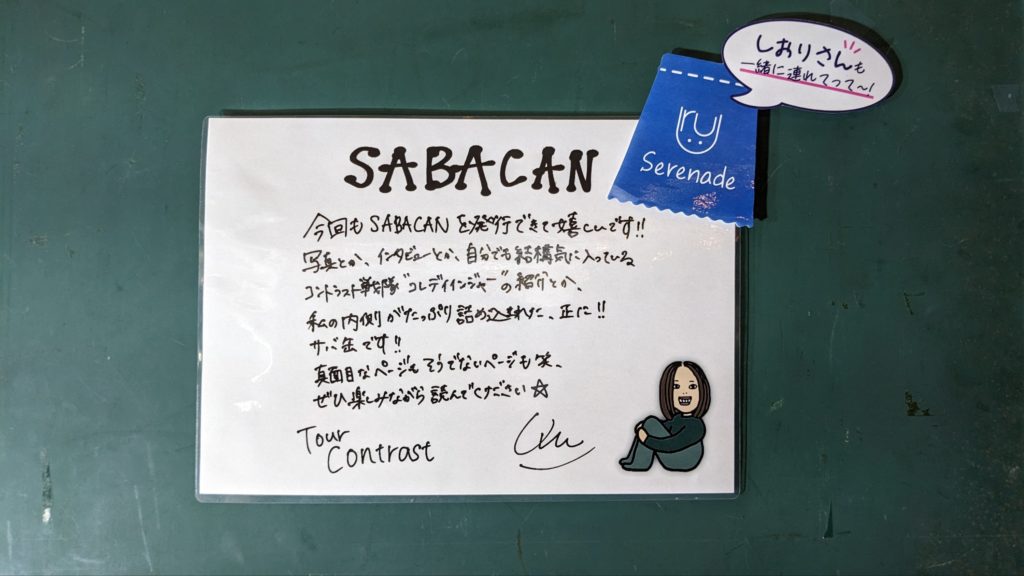 しおりさんも
一緒に連れてって〜!
ru
Serenade
SABACAN
今回もSABACANを発行できて嬉しいです!!
写真とか、インタビューとか、自分でも結構気に入っている
コントラスト戦隊"コレデイインジャー"の紹介とか、
私の内側がたっぷり詰め込まれた、正に!!
サバ缶です!!
真面目なページもそうでないページも笑、
ぜひ楽しみながら読んでください☆
Tour
Contrast